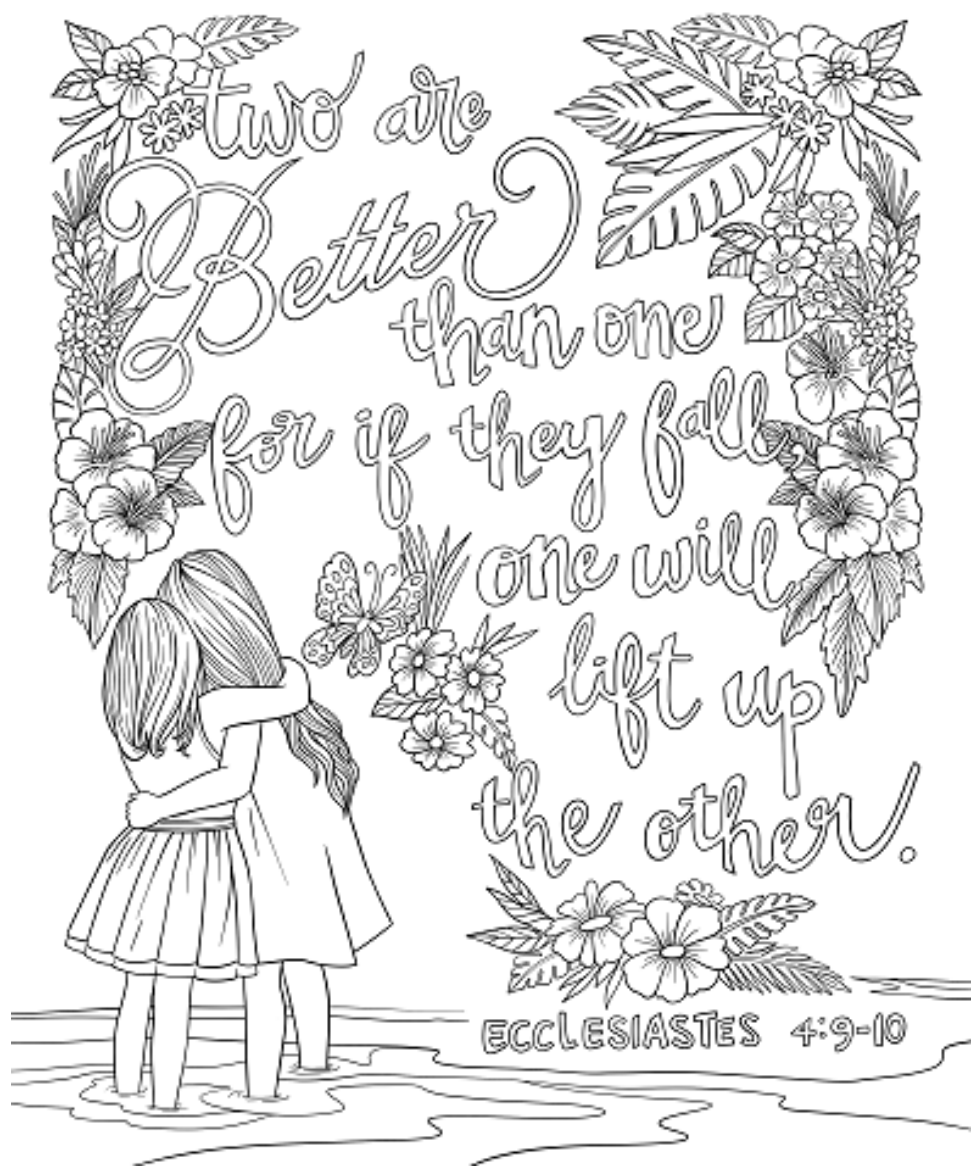 two are
Better
than one
for if they fall,
one will
lift up
the other!
ECCLESIASTES 4:9-10